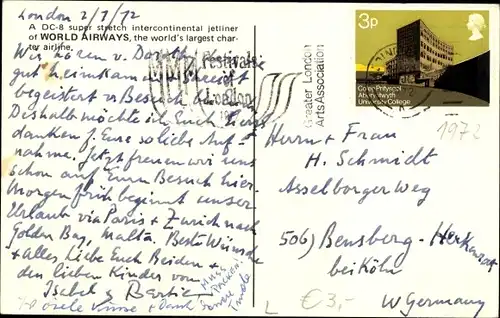 London 2/7/72
A DC-8 super stretch intercontinental jetliner
of WORLD AIRWAYS, the world's largest char-
ter airline.
Wir hören v. Dorothy
gut heimkam und schreibt
begeistert v. Besuch
Deshalb möchte ich Euch herz
danken f. Eure so liebe Auf-
nahme. Jetzt freuen wir uns
schon auf Eurn Besuch hier.
Morgen früh beginnt unser
Urlaub via Paris + Zürich nach
Golden Bay, Malta. Beste Wünsche
+ alles Liebe Euch Beiden +
den lieben Kindern von
Isabel &
Muss
packen.
viele Grüsse + Dank
festivals
of
London
Greater London
Arts Association
3p
Coleg Prifysgol
Aberystwyth
University College
1972
Herrn + Frau
H. Schmidt
Asselborger Weg
506) Bensberg-
bei Köln
W Germany
€ 3,-
L